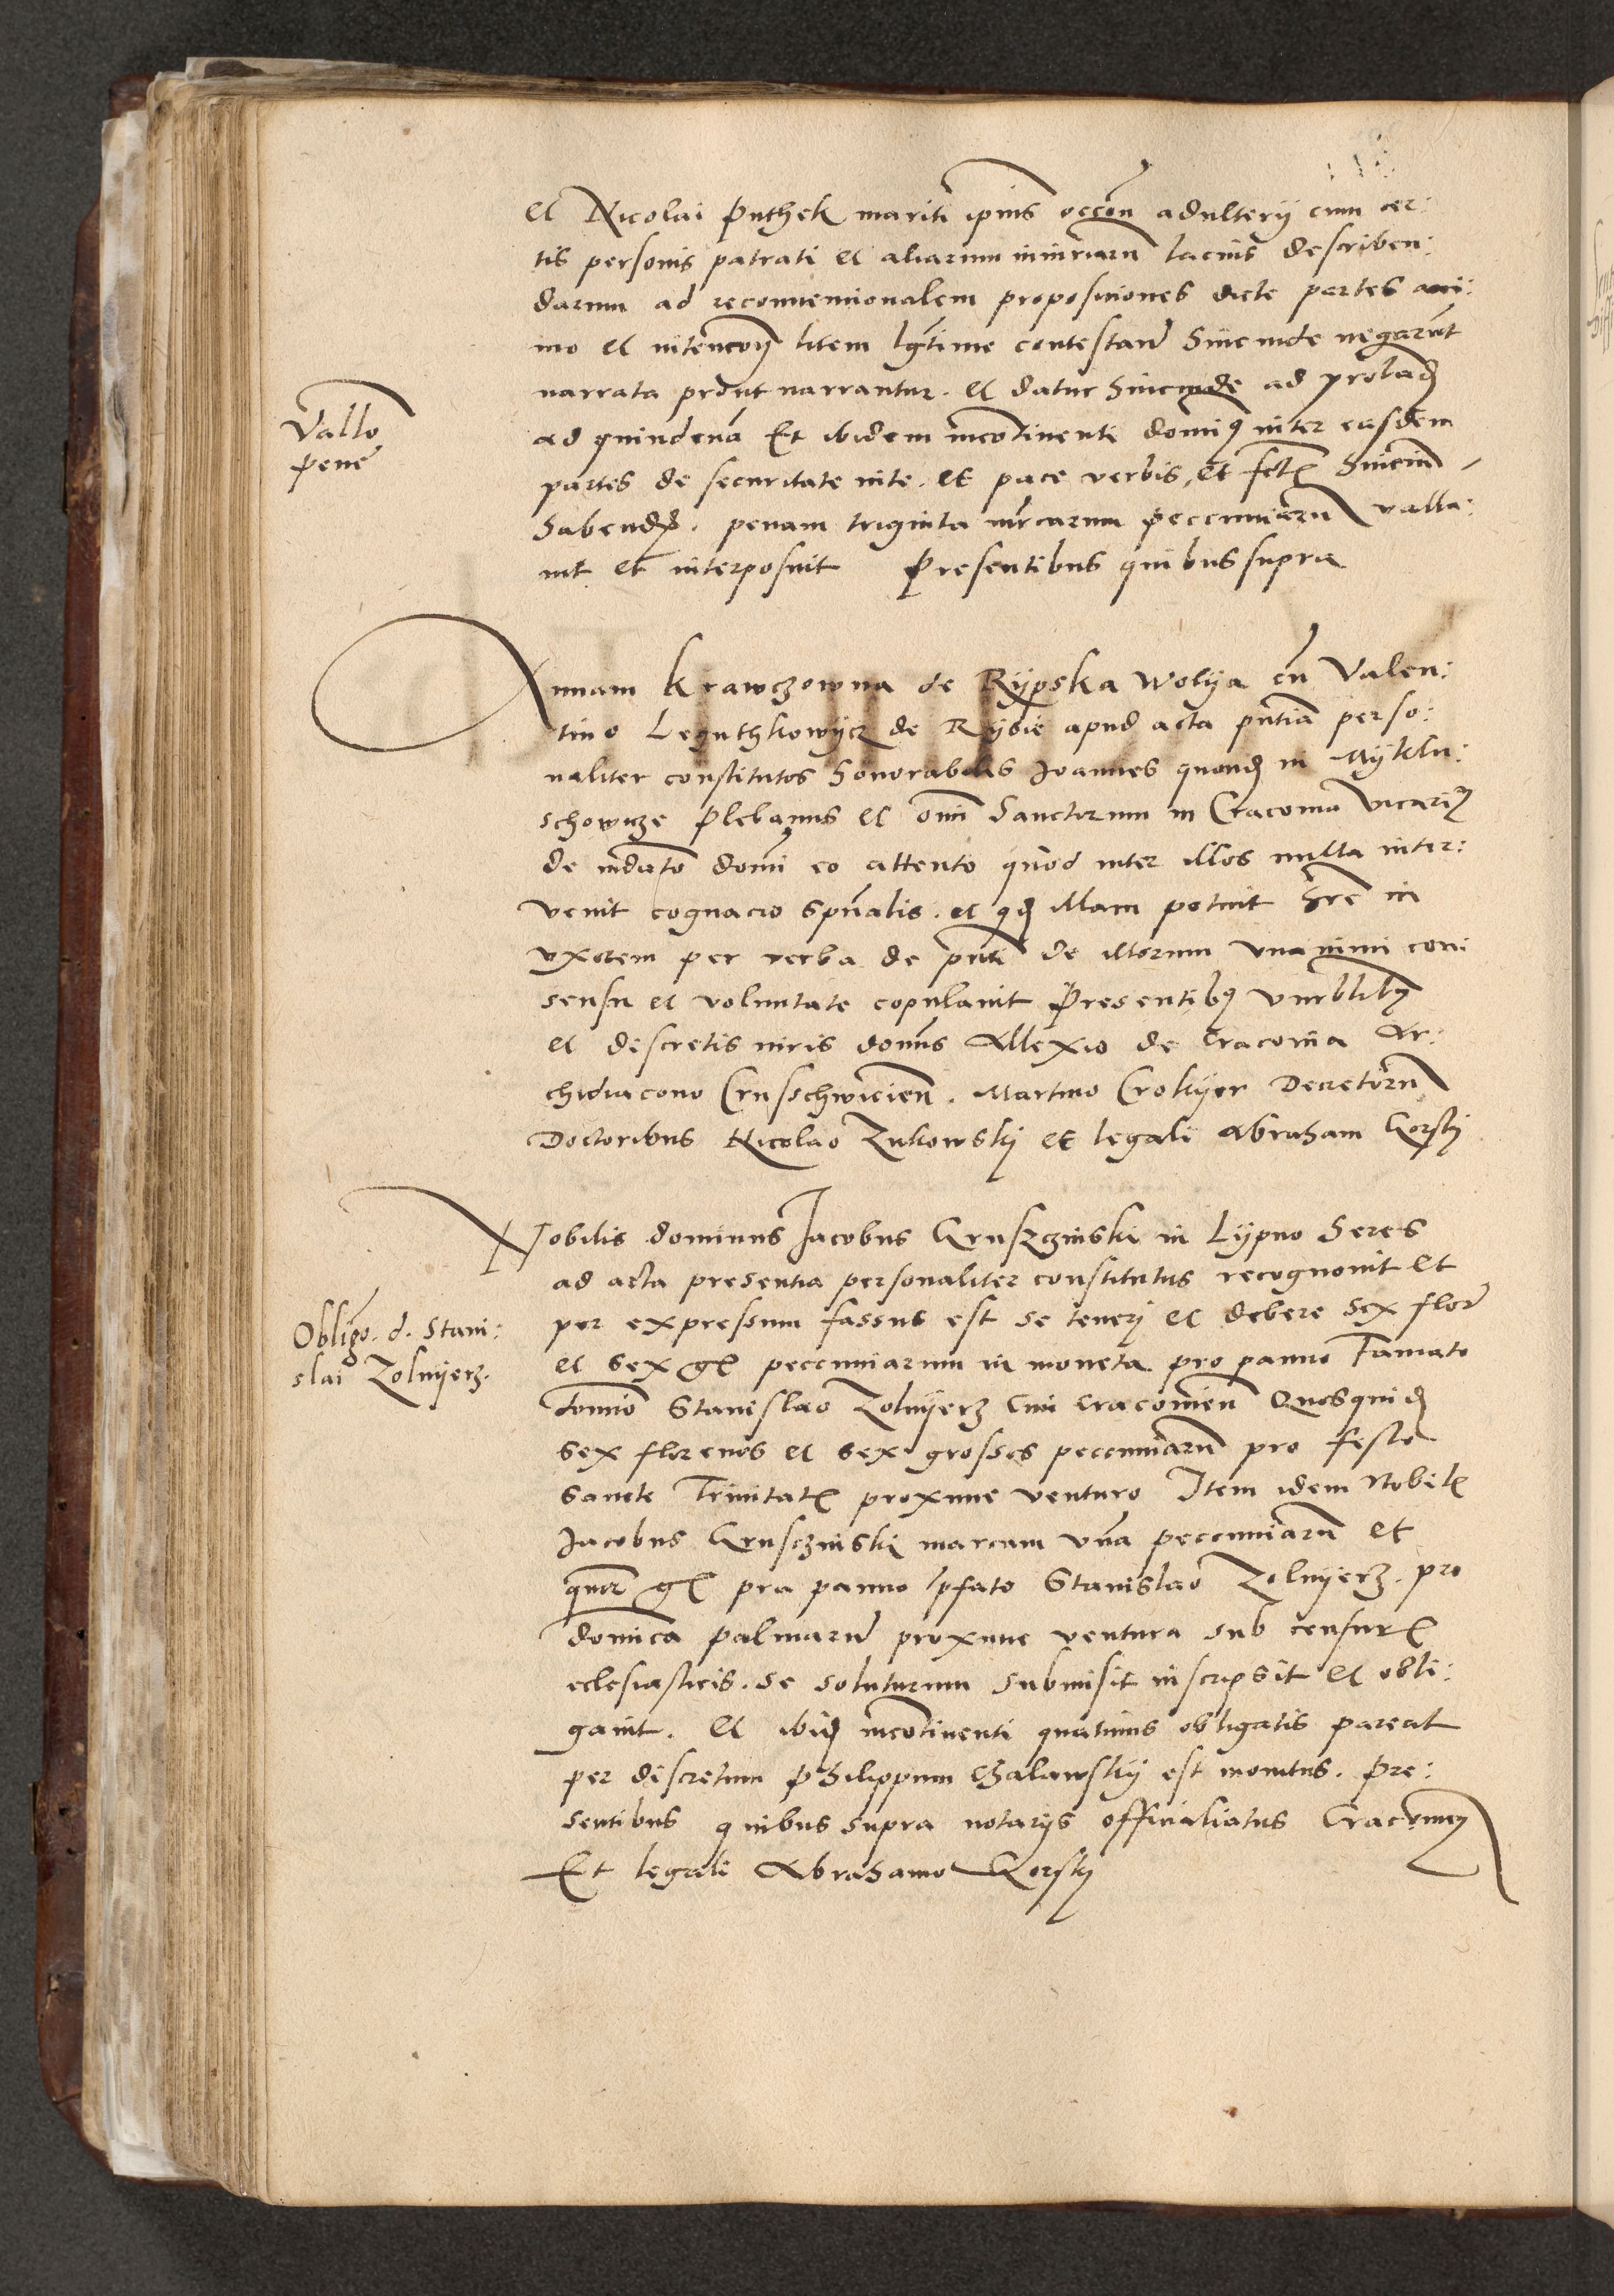 et Nicolai Puthek mariti ipius occon adulterij cum cer:
tis personis patrati et aliarum iniuriarum lacius describen:
darum ad reconuencionalem proposiciones dicte partes ani:
mo et intencoij litem lgtime contestand hincinde negarunt
narrata prout narrantur. et datur hincinde ad proband
Vallo
pene
ad quindena Et ibidem incontinenti dominus inter easdem
partes de securitate uite. et pace verbis, et fctis hincin
habend. penam triginta mrcarum pecuniarum valla:
uit et interposuit Presentibus quibus supra
Annam Krawczowna de Rijpska Wolija cu Valen:
tino Leguthkowijcz de Rijbie apud acta pntia perso:
naliter constitutos honorabilis Joannes quond in Mijklu:
schowicze Plebanus et omi Sanctorum in Cracouia vicarius
de mdato domi eo attento quod inter illos nulla inter:
venit cognacio spualis. et qd illam potuit hre in
vxorem per verba de pnti de illorum vnanimi con:
sensu et voluntate copulauit Presentibus vnrblibus
et discretis uiris domis Allexio de Cracouia Ar:
chidiacono Crusschwicien. Martino Crokyer Decretorum
Doctoribus Nicolao Zukowskj et legali Abraham Gorskj
Nobilis dominus Jacobus Gruszczinski in Lijpno heres
ad acta presentia personaliter constitutus recognouit et
per expressum fassus est se tenerj et debere sex flor
Obligo. d. Stani:
slai Zolnijerz.
et sex gs pecuniarum in moneta pro panno Famato
domino Stanislao Zolnijerz Ciui Cracouien Quosquid
sex florenos et sex grossos pecuniarum pro festo
Sancte Trinitatis proxime venturo Item idem Nobilis
Jacobus Grusczinski marcam vna pecuniarum et
quor gs pra panno ipfato Stanislao Zolnijerz. pro
domica palmarum proxime ventura sub censuris
eclesiasticis. se soluturum submisit inscripsit et obli:
gauit. et ibid incontinenti quatinus obligatis pareat
per discretum Philippum Chalawskij est monitus. Pre:
sentibus quibus supra notarijs officialiatus Cracouien
Et legali Abrahamo Gorskj